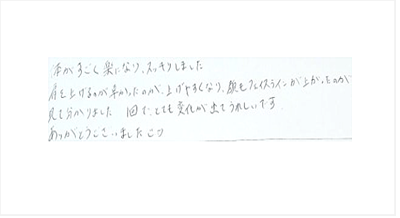 体がすごく楽になり、スッキリしました
肩を上げるのが辛かったのが、上げやすくなり、顔もフェイスラインが上がったのが
見て分かりました 1回でとても変化が出てうれしいです
ありがとうございました